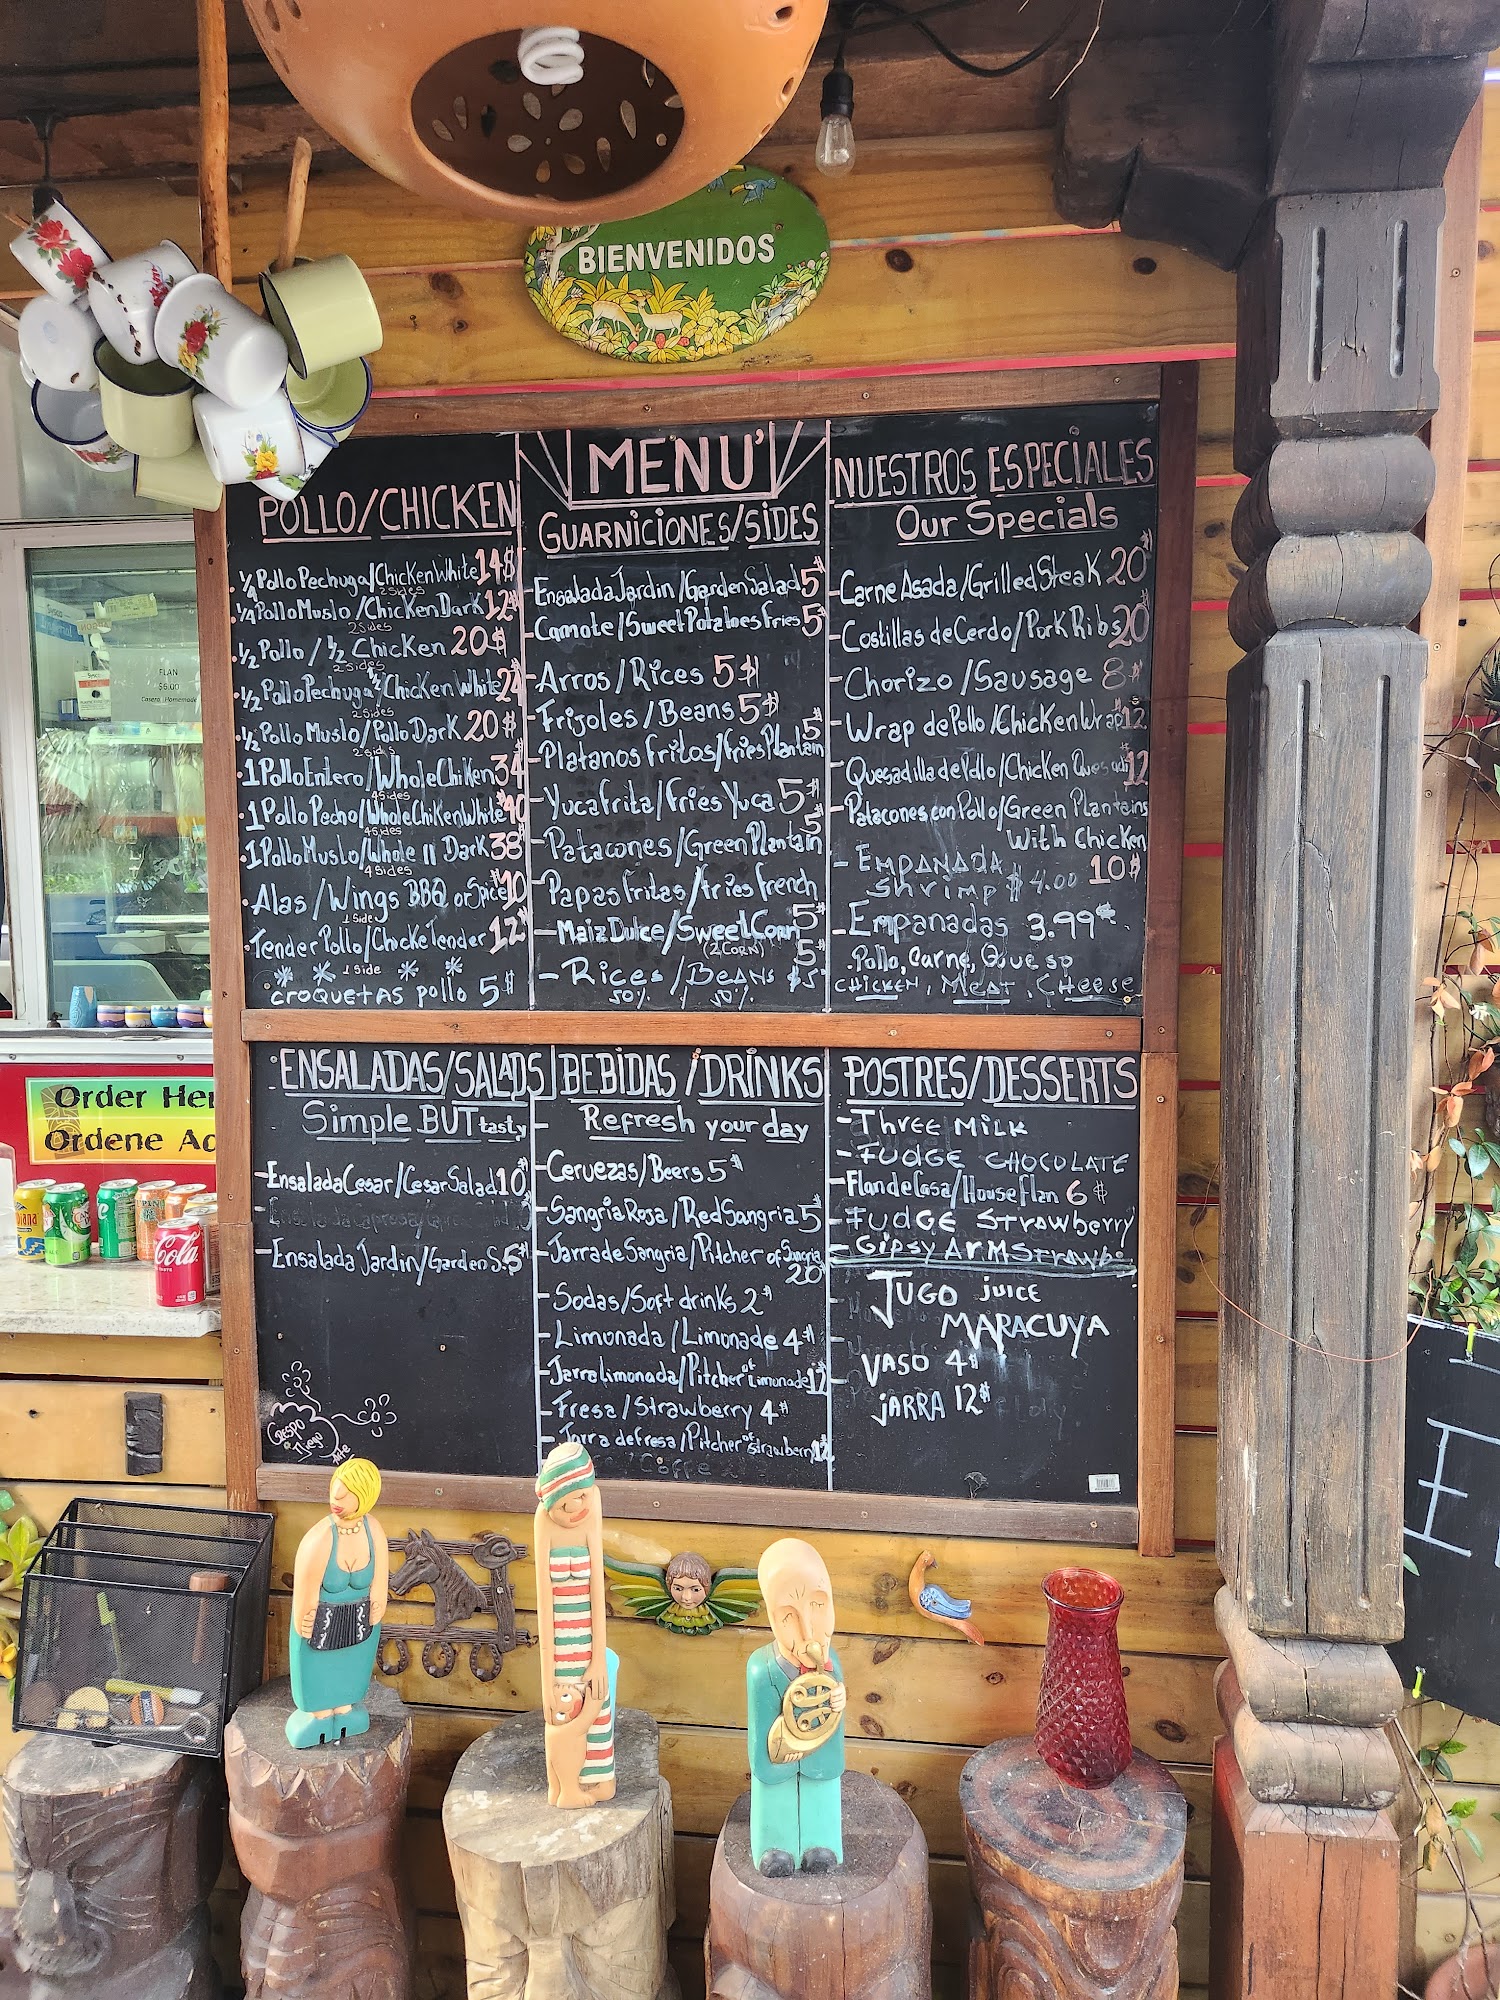 BIENVENIDOS
MENU'
POLLO/CHICKEN
1/4 Pollo Pechuga/Chicken White 14$
2 Sides
1/4 Pollo Muslo/Chicken Dark 12$
2 Sides
1/2 Pollo/1/2 Chicken 20$
2 Sides
1/2 Pollo Pechuga 1/2 Chicken White 24
2 Sides
1/2 Pollo Muslo/Pollo Dark 20$
2 Sides
1 Pollo Entero/Whole ChiKen 34
4 Sides
1 Pollo Pecho/Whole ChiKen White $40
4 Sides
1 Pollo Muslo/Whole 11 Dark 38$
4 Sides
Alas/Wings BBQ or Spice 10$
1 Side
Tender Pollo/Chicke Tender 12$
1 Side
CROQUETAS pollo 5$
GUARNICIONES/SIDES
Ensalada Jardin/Garden Salad 5$
Camote/Sweet Potatoes Fries 5$
Arros/Rices 5$
Frijoles/Beans 5$
Platanos Fritos/Fries Plantain 5$
Yuca Frita/Fries Yuca 5$
Patacones/Green Plantain 5$
Papas Fritas/Fries French
Maiz Dulce/Sweet Corn 5$
(2 CORN)
5$
Rices/BEANS $5
50% y 50%
NUESTROS ESPECIALES
Our Specials
Carne Asada/Grilled SteaK 20$
Costillas de Cerdo/Pork Ribs 20$
Chorizo/Sausage 8$
Wrap de Pollo/Chicken Wrap 12$
Quesadilla de Pollo/Chicken Quesadi 12$
Patacones con Pollo/Green Plantains
With Chicken
10$
EMPANADA
Shrimp $4.00
Empanadas 3.99
Pollo, Carne, Queso
CHICKEN, MEAT, CHEESE
ENSALADAS/SALADS
Simple BUT tasty
Ensalada Cesar/Cesar Salad 10$
Ensalada Jardin/Garden S. 5$
Crespo
Diego
Arte
BEBIDAS/DRINKS
Refresh your day
Ceruezas/Beers 5$
Sangria Roja/Red Sangria 5$
Jarra de Sangria/Pitcher of Sangria
20$
Sodas/Soft drinks 2$
Limonada/Limonade 4$
Jarra Limonada/Pitcher of Limonade 12
Fresa/Strawberry 4$
Jarra de fresa/Pitcher of Strawberry 12
Coffe
POSTRES/DESSERTS
Three MILK
FUDGE CHOCOLATE
Flan de Casa/House Flan 6$
FUDGE Strawberry
GiPSY ArM Strawb
JUGO juice
MARACUYA
VASO 4$
jARRA 12$
FLAN
$6.00
Casero Homemade
Order Her
Ordene Ac
Cola